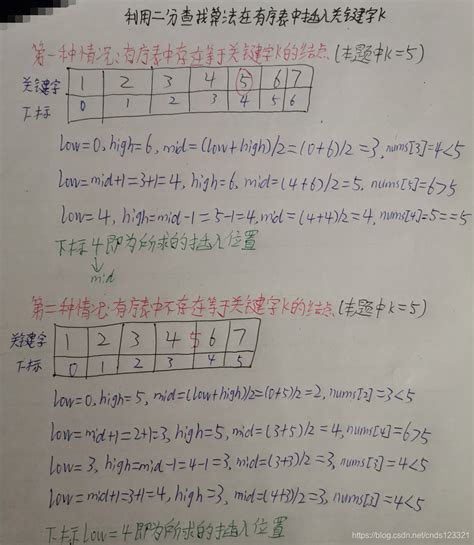 利用二分查找算法在有序表中插入关键字K
第一种情况:有序表中存在等于关键字K的结点(本题中K=5)
关键字 1 2 3 4 5 6 7
下标 0 1 2 3 4 5 6
low=0, high=6, mid=(low+high)/2=(0+6)/2=3, nums[3]=4<5
low=mid+1=3+1=4, high=6, mid=(4+6)/2=5, nums[5]=6>5
low=4, high=mid-1=5-1=4, mid=(4+4)/2=4, nums[4]=5==5
下标4即为所求的插入位置
mid
第二种情况:有序表中不存在等于关键字K的结点(本题中K=5)
关键字 1 2 3 4 5 6 7
下标 0 1 2 3 4 5
low=0, high=5, mid=(low+high)/2=(0+5)/2=2, nums[2]=3<5
low=mid+1=2+1=3, high=5, mid=(3+5)/2=4, nums[4]=6>5
low=3, high=mid-1=4-1=3, mid=(3+3)/2=3, nums[3]=4<5
low=mid+1=3+1=4, high=3, mid=(4+3)/2=3, nums[3]=4<5
下标low=4即为所求的插入位置
https://blog.csdn.net/cnds123321